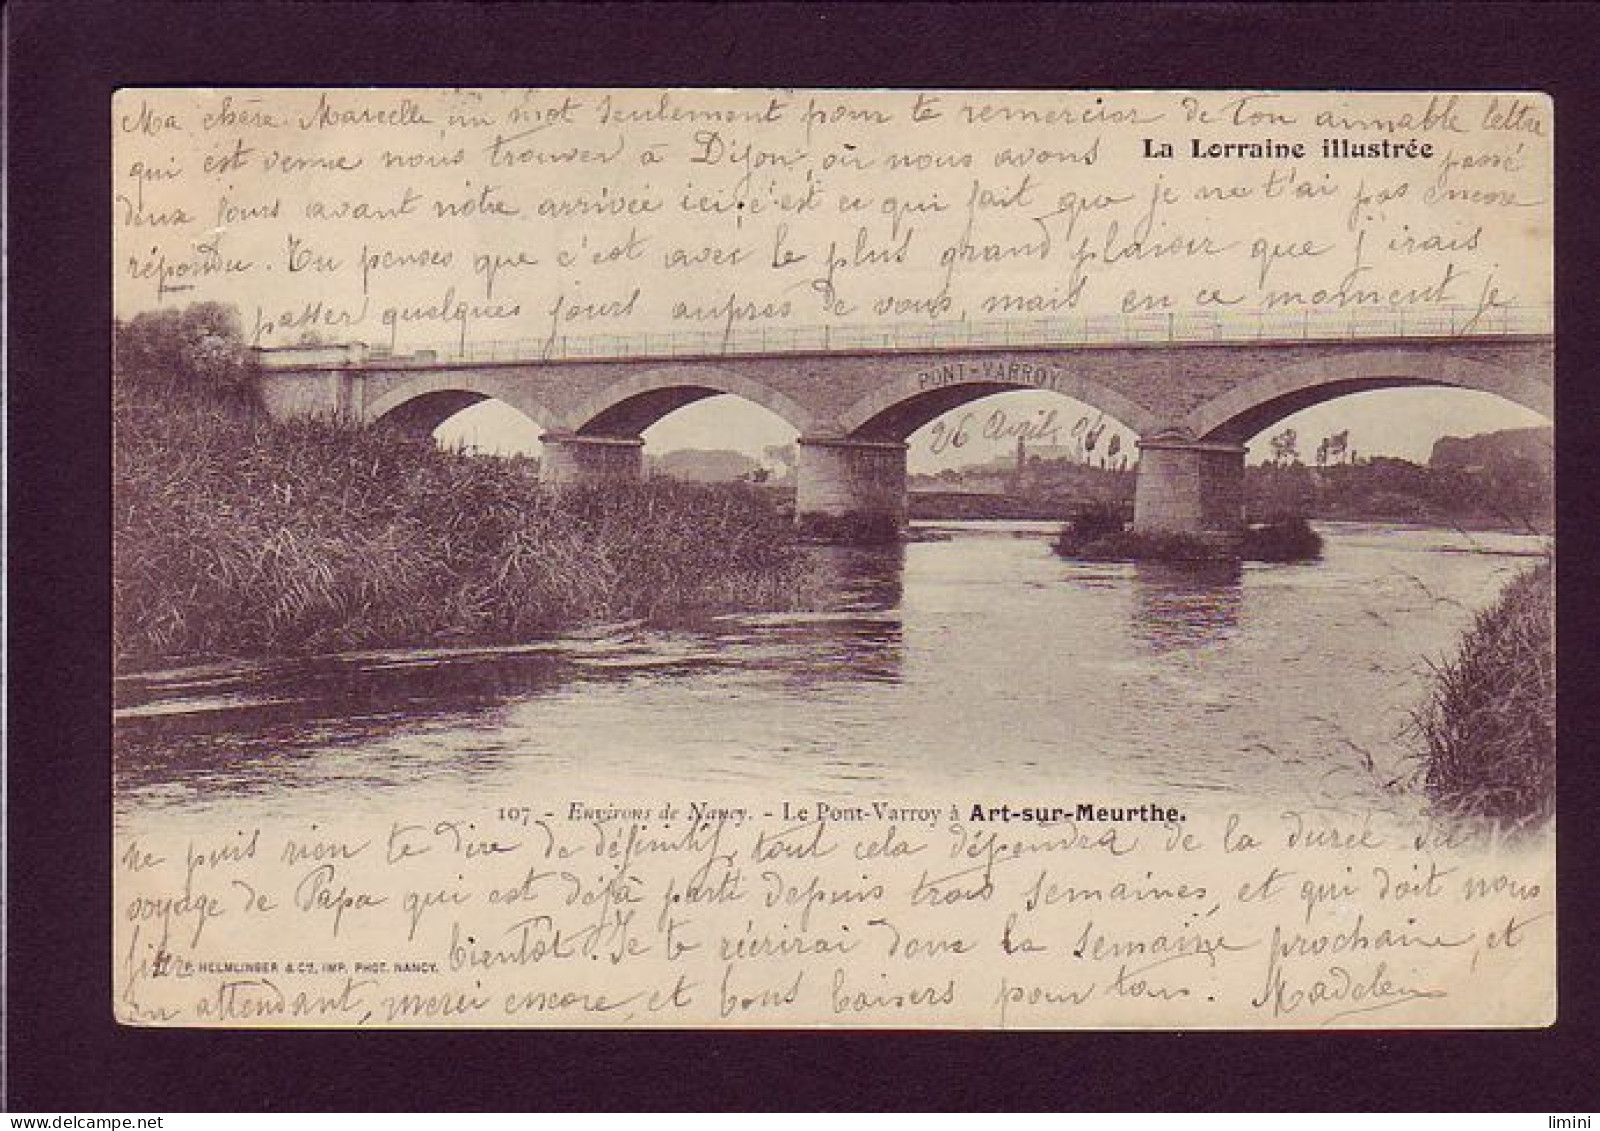 Ma chère Marcelle, un mot seulement pour te remercier de ton aimable lettre
qui est venue nous trouver à Dijon, où nous avons passé
La Lorraine illustrée
deux jours avant nôtre arrivée ici; c'est ce qui fait que je ne t'ai pas encore
répondu. Tu penses que c'est avec le plus grand plaisir que j'irais
passer quelques jours auprès de vous, mais en ce moment je
PONT-VARROY
26 Avril
107 - Environs de Nancy. - Le Pont-Varroy à Art-sur-Meurthe.
ne puis rien te dire de définitif, tout cela dépendra de la durée du
voyage de Papa qui est déjà parti depuis trois semaines, et qui doit nous
fixer bientôt. Je te récrirai dans la semaine prochaine, et
P. HELMLINGER & Cie, IMP. PHOT. NANCY.
en attendant, merci encore, et bons baisers pour tous. Madeleine
limini